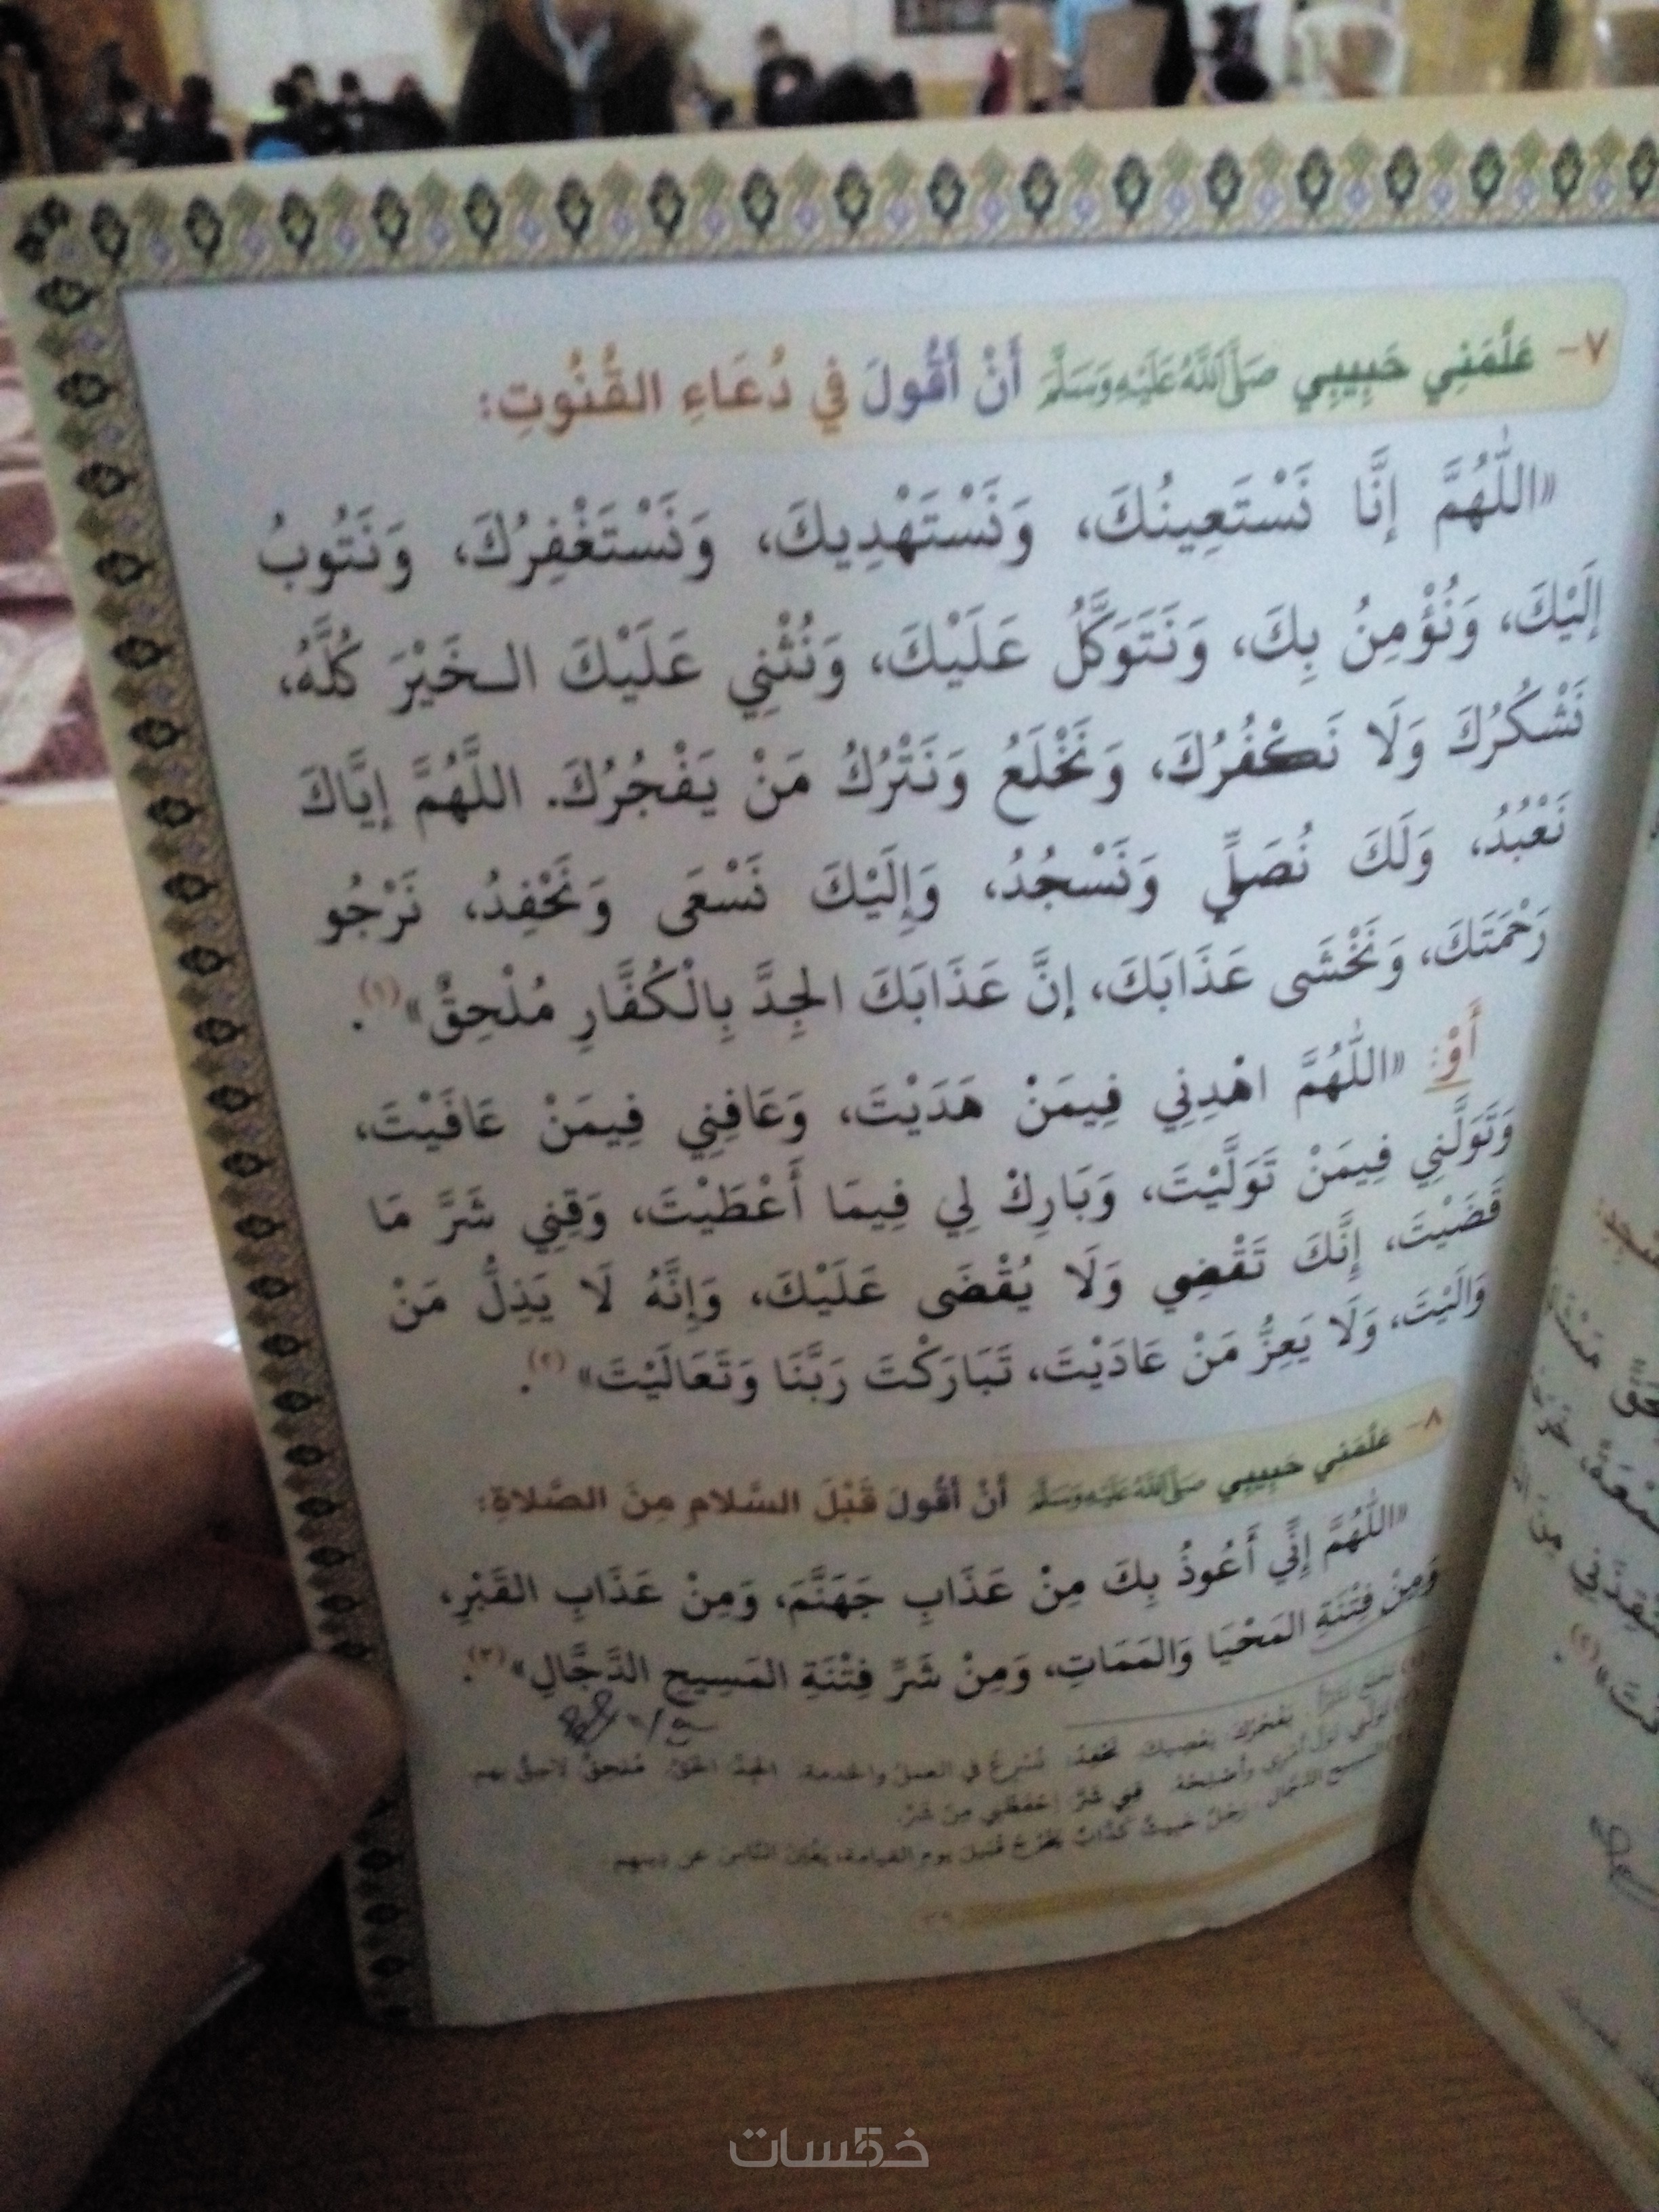 ٧- عَلَّمَنِي حَبِيبِي صَلَّى اللَّهُ عَلَيْهِ وَسَلَّمَ أَنْ أَقُولَ فِي دُعَاءِ القُنُوتِ:
«اللَّهُمَّ إِنَّا نَسْتَعِينُكَ، وَنَسْتَهْدِيكَ، وَنَسْتَغْفِرُكَ، وَنَتُوبُ
إِلَيْكَ، وَنُؤْمِنُ بِكَ، وَنَتَوَكَّلُ عَلَيْكَ، وَنُثْنِي عَلَيْكَ الـخَيْرَ كُلَّهُ،
نَشْكُرُكَ وَلَا نَكْفُرُكَ، وَنَخْلَعُ وَنَتْرُكُ مَنْ يَفْجُرُكَ. اللَّهُمَّ إِيَّاكَ
نَعْبُدُ، وَلَكَ نُصَلِّي وَنَسْجُدُ، وَإِلَيْكَ نَسْعَى وَنَحْفِدُ، نَرْجُو
رَحْمَتَكَ، وَنَخْشَى عَذَابَكَ، إِنَّ عَذَابَكَ الجِدَّ بِالْكُفَّارِ مُلْحِقٌ»(١).
أَوْ: «اللَّهُمَّ اهْدِنِي فِيمَنْ هَدَيْتَ، وَعَافِنِي فِيمَنْ عَافَيْتَ،
وَتَوَلَّنِي فِيمَنْ تَوَلَّيْتَ، وَبَارِكْ لِي فِيمَا أَعْطَيْتَ، وَقِنِي شَرَّ مَا
قَضَيْتَ، إِنَّكَ تَقْضِي وَلَا يُقْضَى عَلَيْكَ، وَإِنَّهُ لَا يَذِلُّ مَنْ
وَالَيْتَ، وَلَا يَعِزُّ مَنْ عَادَيْتَ، تَبَارَكْتَ رَبَّنَا وَتَعَالَيْتَ»(٢).
٨- عَلَّمَنِي حَبِيبِي صَلَّى اللَّهُ عَلَيْهِ وَسَلَّمَ أَنْ أَقُولَ قَبْلَ السَّلامِ مِنَ الصَّلاةِ:
«اللَّهُمَّ إِنِّي أَعُوذُ بِكَ مِنْ عَذَابِ جَهَنَّمَ، وَمِنْ عَذَابِ القَبْرِ،
وَمِنْ فِتْنَةِ المَحْيَا وَالمَمَاتِ، وَمِنْ شَرِّ فِتْنَةِ المَسِيحِ الدَّجَّالِ»(٣).
يَفْجُرُكَ: يَعْصِيكَ. نَحْفِدُ: نُسْرِعُ فِي العَمَلِ وَالخِدمة. الجِدَّ: الحَقَّ. مُلْحِقٌ: لَاحِقٌ بهم
قِنِي شَرَّ: احْفَظْنِي مِنْ شَرِّ.
المسيح الدَّجَّال: رَجُلٌ خبيثٌ كَذَّابٌ يَخْرُجُ قبل يوم القيامة، يَفْتِنُ النَّاسَ عن دينهم
خمسات